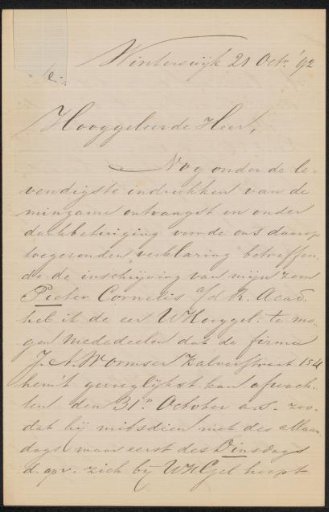 Winterswijk 21 Oct. '92
Hooggeleerde Heer,
Nog onder de le-
vendigste indrukken van de
minzame ontvangst en onder
dankbetuiging voor de ons daarop
toegezonden verklaring betreffen-
de de inschrijving van mijn zoon
Pieter Cornelis a/d R. Acad.
heb ik de eer UHooggel. te mo-
gen mededeelen dat de firma
J. A. Wormser Kalverstraat 154
hem 't
ten den 31n October a.s. zoo-
dat hij mitsdien niet des Maan-
dags maar eerst des Dinsdags
d.a.v. zich bij UHGel hoopt